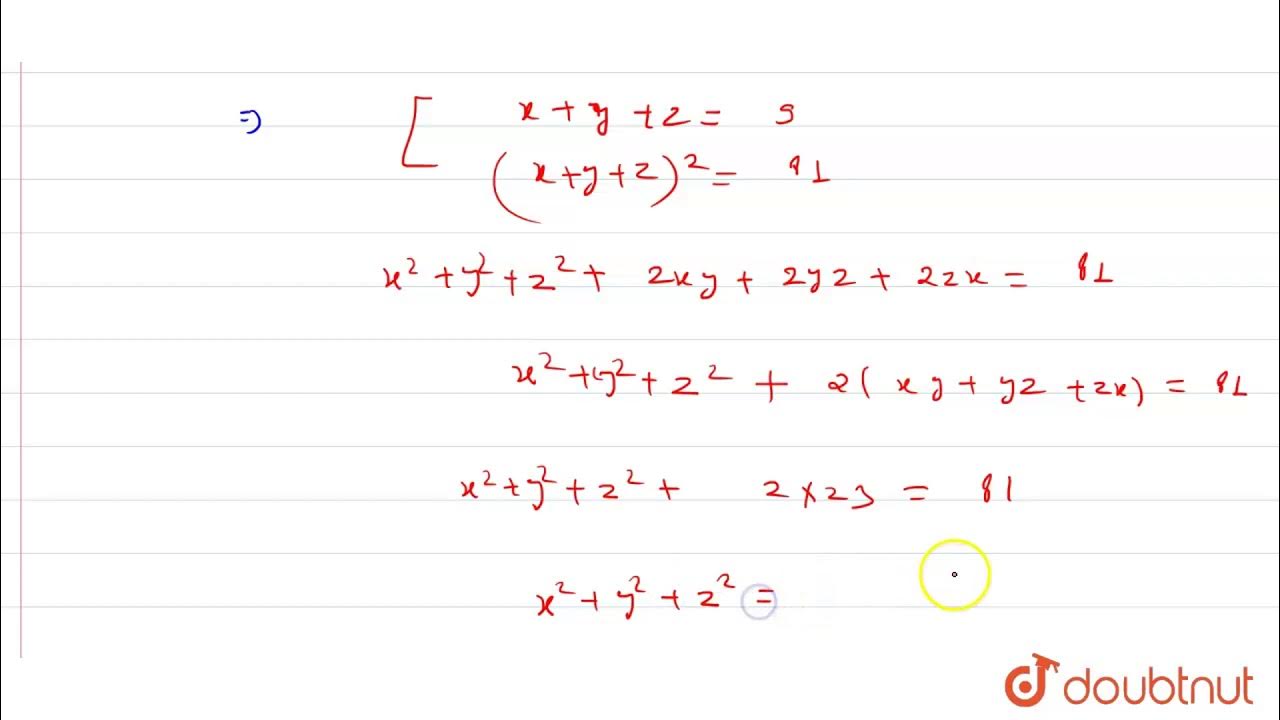 ⇒ [ x + y + z = 9
(x+y+z)² = 81
x² + y² + z² + 2xy + 2yz + 2zx = 81
x² + y² + z² + 2( xy + yz + zx) = 81
x² + y² + z² + 2 × 23 = 81
x² + y² + z² =
doubtnut